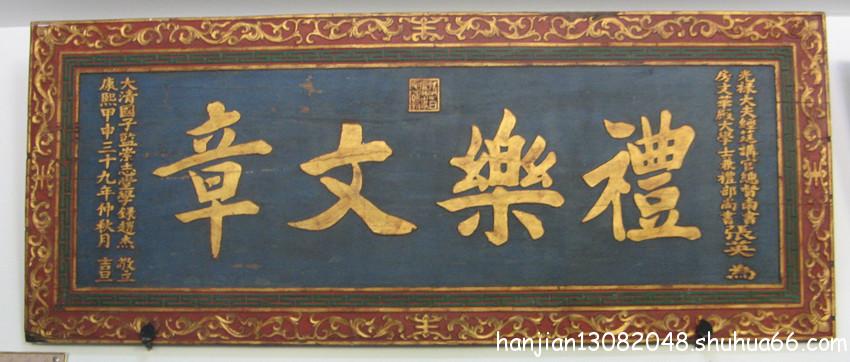 光祿大夫經筵講官總督南書
房文華殿大學士兼禮部尚書張英為
禮樂文章
大清國子監率志堂學錄趙杰敬立
康熙甲申三十九年仲秋月吉旦
hanjian13082048.shuhua66.com